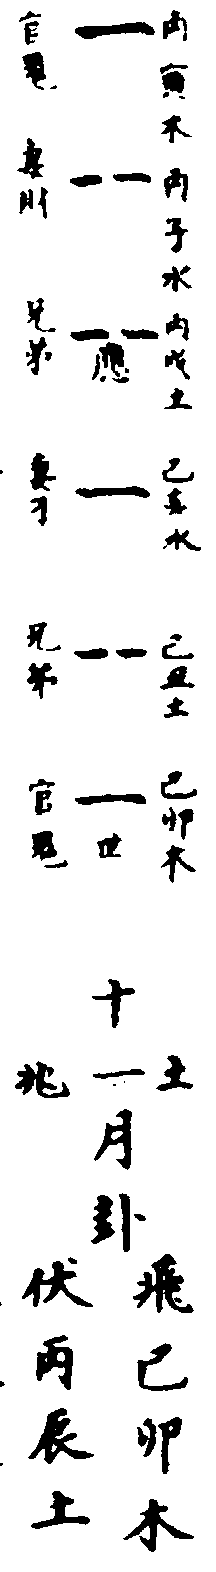 丙寅木
官鬼
丙子水
妻財
丙戌土
應
兄弟
己亥水
妻才
己丑土
兄弟
己卯木
世
官鬼
土
十一月卦
飛己卯木
伏丙辰土